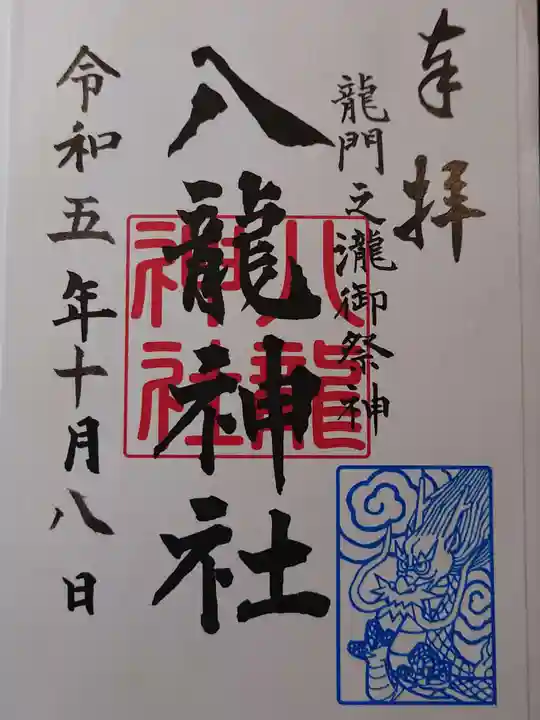 奉拝
龍門之瀧御祭神
八龍神社
八龍
神社
令和五年十月八日